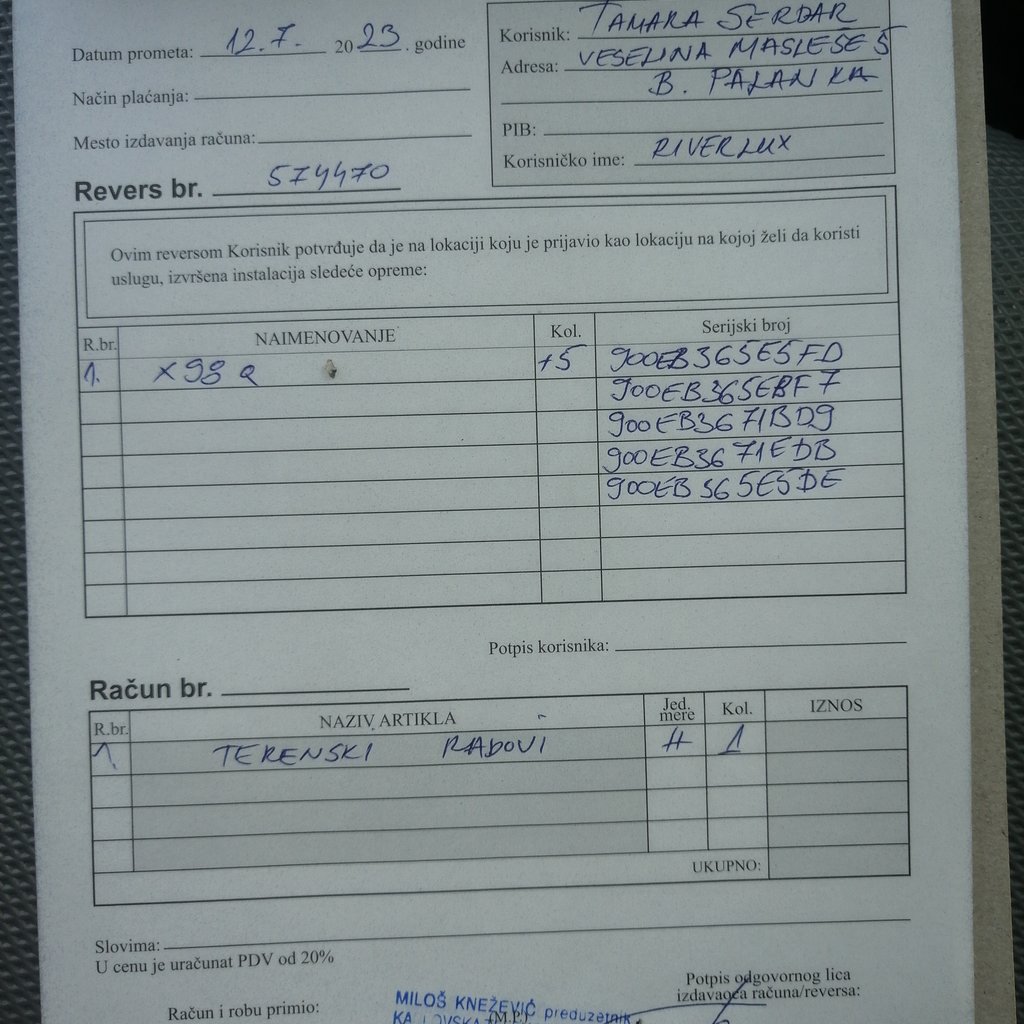 Datum prometa: 12.7. 2023. godine
Korisnik: TAMARA SERDAR
Adresa: VESELINA MASLEŠE 5
B. PALANKA
Način plaćanja:
Mesto izdavanja računa:
PIB:
Korisničko ime: RIVERLUX
Revers br. 574470
Ovim reversom Korisnik potvrđuje da je na lokaciji koju je prijavio kao lokaciju na kojoj želi da koristi
uslugu, izvršena instalacija sledeće opreme:
R.br. NAIMENOVANJE Kol. Serijski broj
1. X98 Q +5 900EB365E5FD
900EB365EBF7
900EB3671BD9
900EB3671EDB
900EB365E5DE
Potpis korisnika:
Račun br.
R.br. NAZIV ARTIKLA Jed. mere Kol. IZNOS
1. TERENSKI RADOVI H 1
UKUPNO:
Slovima:
U cenu je uračunat PDV od 20%
Potpis odgovornog lica
izdavaoca računa/reversa:
Račun i robu primio:
MILOŠ KNEŽEVIĆ preduzetnik
(M.P.)